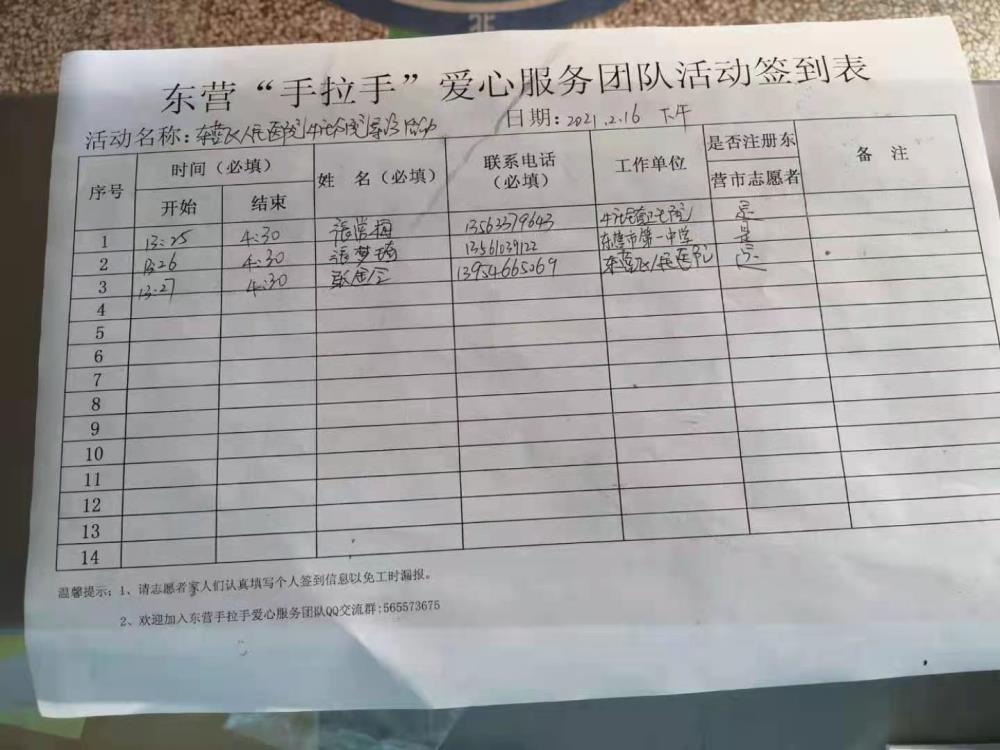 东营“手拉手”爱心服务团队活动签到表
活动名称：东营区人民医院 活动 日期：2021.2.16 下午
序号 时间（必填） 姓 名（必填） 联系电话（必填） 工作单位 是否注册东营市志愿者 备 注
开始 结束
1 13:25 4:30 张 13562379643 是
2 13:26 4:30 张梦琦 13561039122 东营市第一中学 是
3 13:27 4:30 13954665269 东营区人民医院 是
4
5
6
7
8
9
10
11
12
13
14
温馨提示：1、请志愿者家人们认真填写个人签到信息以免工时漏报。
2、欢迎加入东营手拉手爱心服务团队QQ交流群:565573675